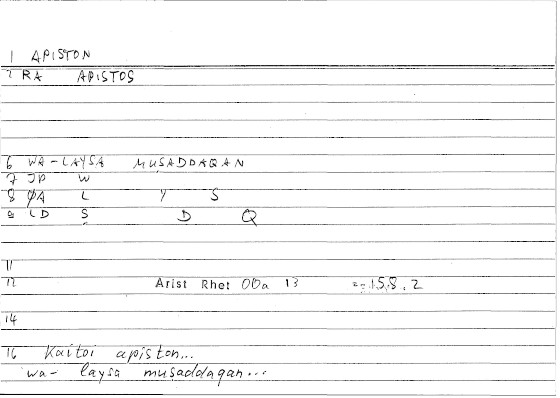 1 APISTON
2 RA APISTOS
6 WA-LAYSA MUṢADDAQAN
7 JP W
8 ØA L Y S
9 LD Ṣ D Q
11
12 Arist Rhet 00a 13 = 158.2
14
16 Kaitoi apiston...
wa- laysa muṣaddaqan...